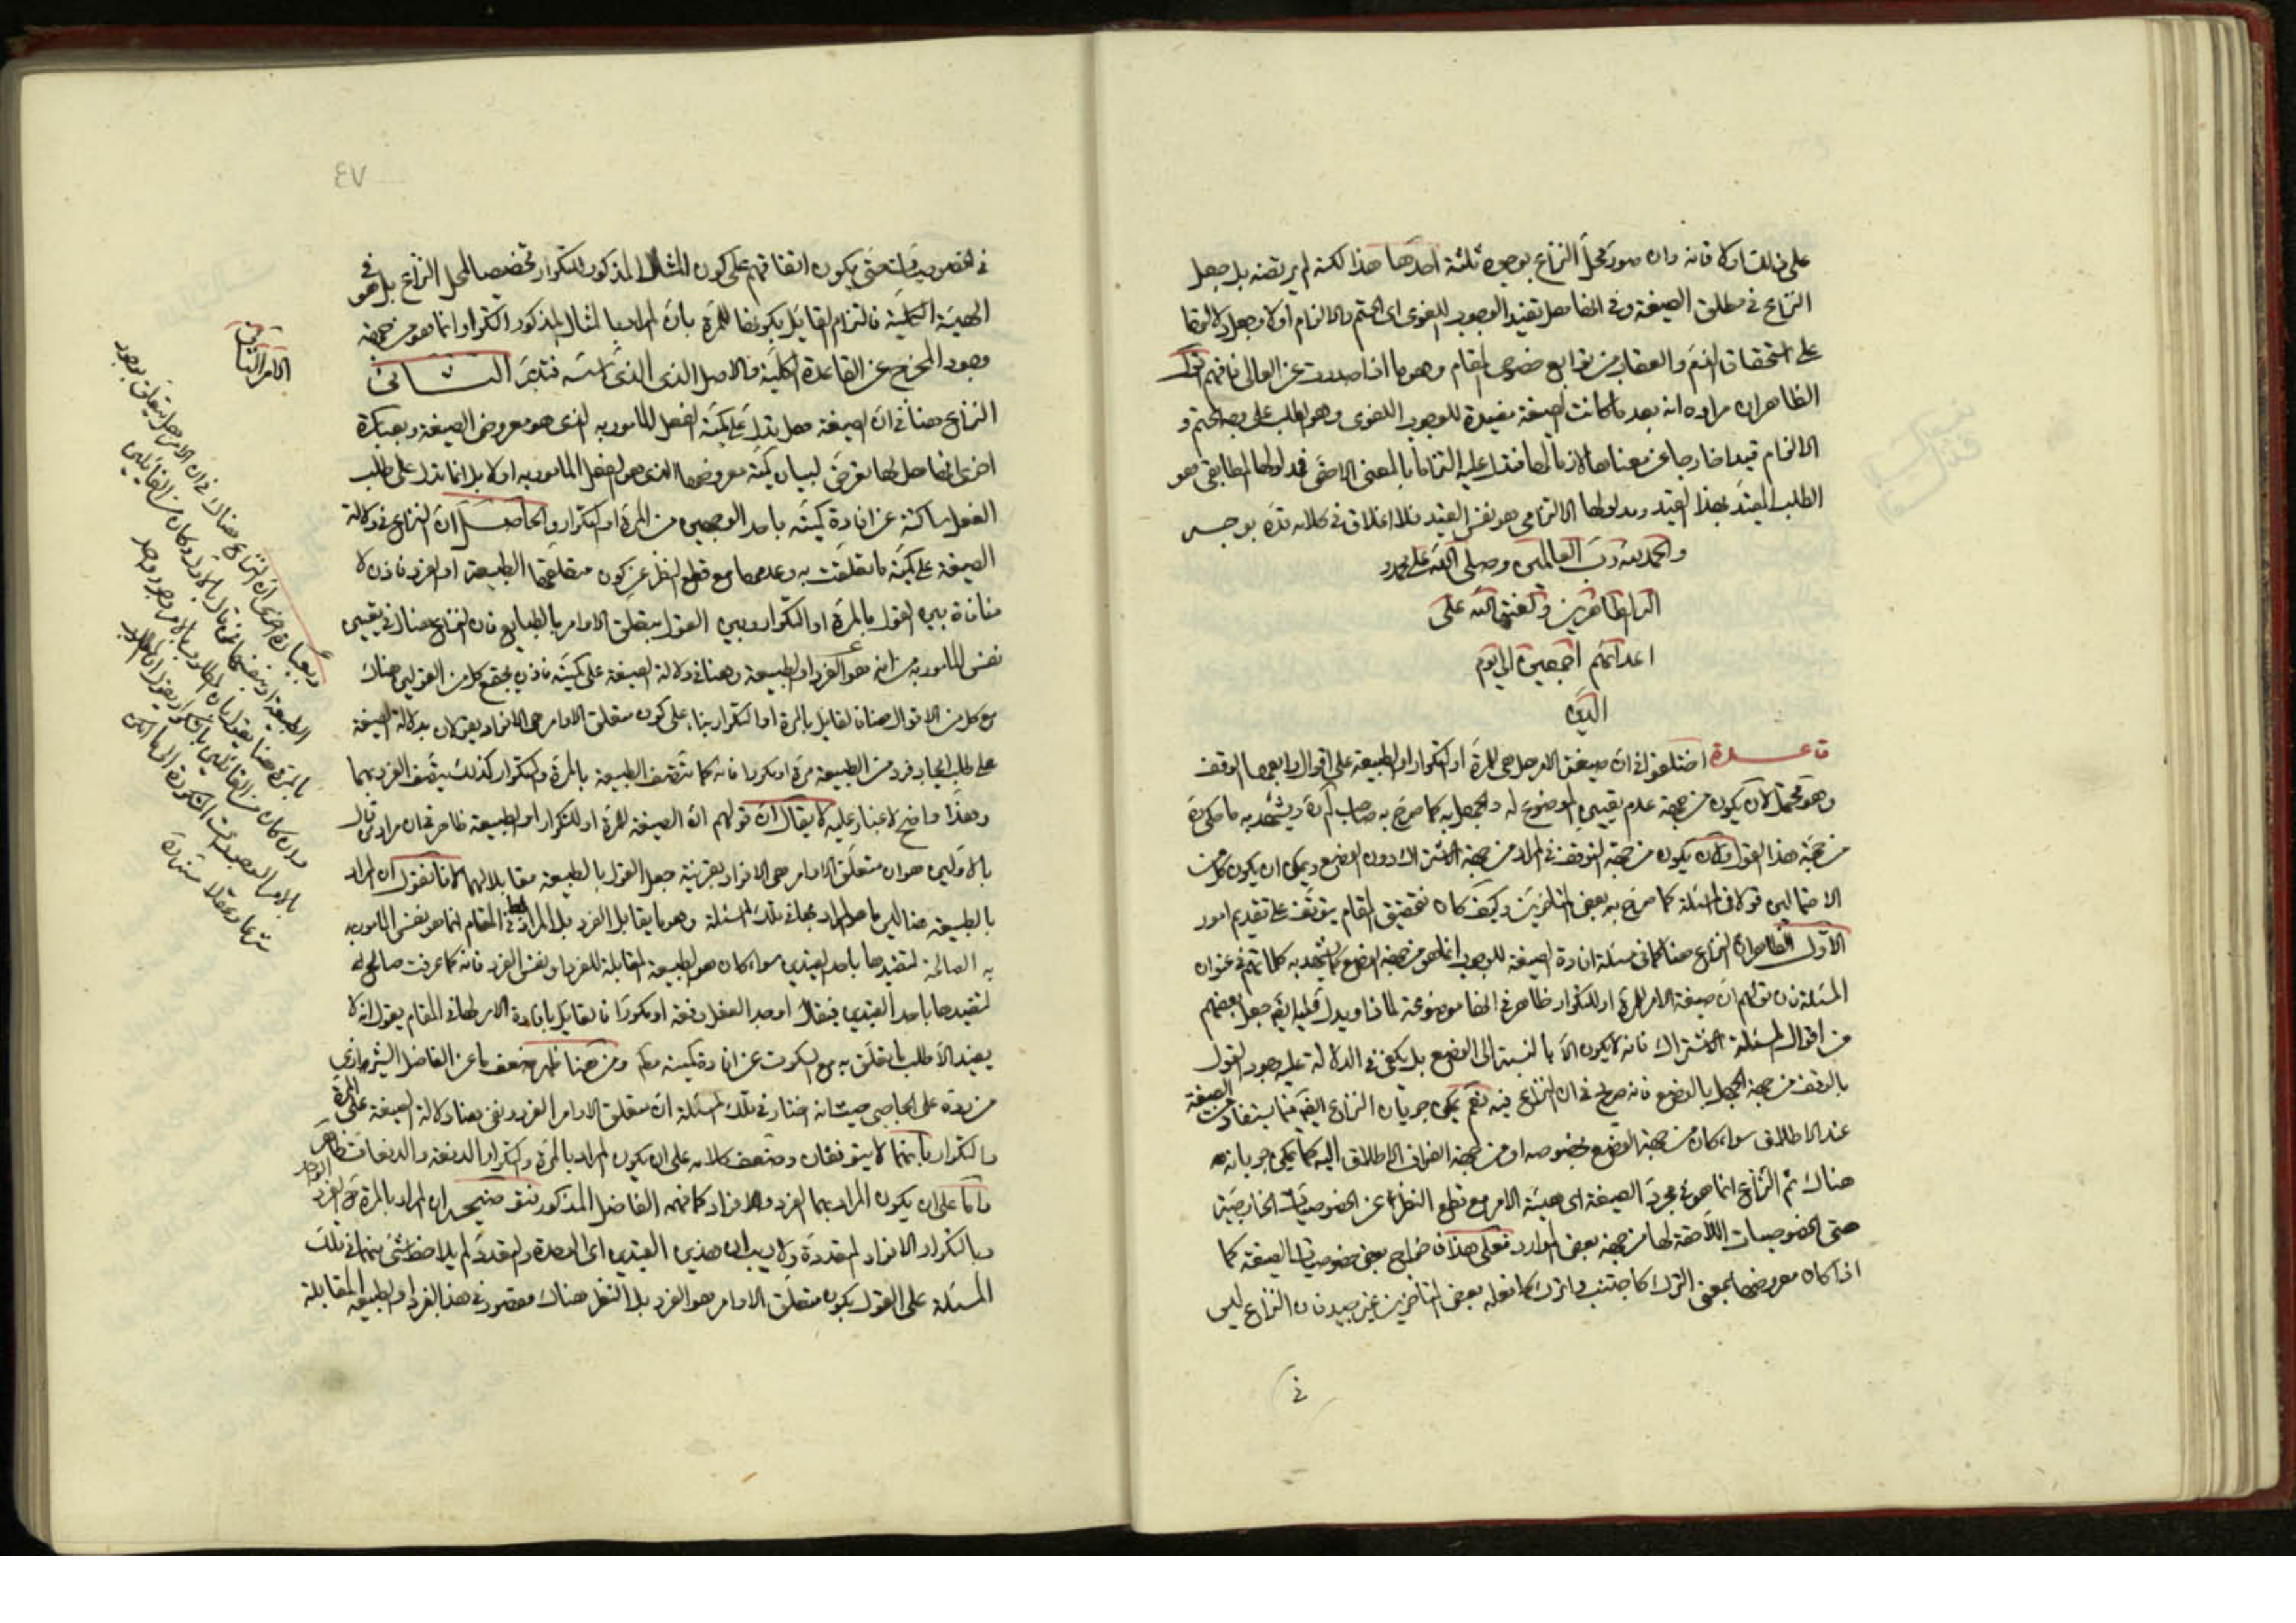 على ذلك اولا فانه وان صور محل النزاع بوجوه ثلثة احدها هذا لكنه لم يرتضه بل جعل
النزاع في مطلق الصيغة وفي انها هل تفيد الوجوب اللغوي اي الحتم والالزام اولا وجعل دلالتها
على استحقاق الذم والعقاب من توابع خصوص المقام وهو ما اذا صدرت عن العالي فافهم اقول
الظاهر ان مراده انه بعد ما كانت الصيغة مفيدة للوجوب اللغوي وهو الطلب على وجه الحتم و
الالزام قيدا خارجا عن معناها لازما لها فتدل عليه التزاما بالمعنى الاخص فمدلولها المطابقي هو
الطلب المقيد بهذا القيد ومدلولها الالتزامي هو نفس القيد فلا اغلاق في كلامه قده بوجه
والحمد لله رب العالمين وصلى الله على محمد و
اله الطاهرين ولعنة الله على
اعدائهم اجمعين الى يوم
الدين
قاعدة اختلفوا في ان صيغة الامر هل هي للمرة او التكرار او الطبيعة على اقوال رابعها الوقف
وهو محتمل لان يكون من جهة عدم تعيين الموضوع له والجهل به كما صرح به صاحب لم ره ويشهد به ما حكي ره
من حجة هذا القول ولان يكون من جهة التوقف في المراد من جهة الاشتراك دون الوضع ويمكن ان يكون كل من
الاحتمالين قولا في المسئلة كما صرح به بعض المتاخرين وكيف كان فتحقيق المقام يتوقف على تقديم امور
الاول الظاهر ان النزاع هنا كما في مسئلة افادة الصيغة للوجوب انما هو من جهة الوضع كما يشهد به كلماتهم في عنوان
المسئلة فان قولهم ان صيغة الامر للمرة او للتكرار ظاهر في انها موضوعة لماذا ويدل عليه ايضا جعل بعضهم
من اقوال المسئلة الاشتراك فانه لا يكون الا بالنسبة الى الوضع بل يكفي في الدلالة عليه وجود القول
بالوقف من جهة الجهل بالوضع فانه صريح في ان النزاع فيه نعم يمكن جريان النزاع ايضا فيما يستفاد من الصيغة
عند الاطلاق سواء كان من جهة الوضع بخصوصه او من جهة انصراف الاطلاق اليه كما يمكن جريانه
هناك ثم النزاع انما هو في مجرد الصيغة اي هيئة الامر مع قطع النظر عن الخصوصيات الخارجية
حتى الخصوصيات اللاحقة لها من جهة بعض الموارد فعلى هذا فاخراج بعض خصوصيات الصيغة كما
اذا كان معروضها بمعنى الترك كاجتنب واترك كما فعله بعض المتاخرين غير جيد فان النزاع ليس
في
٤٧
في الخصوصيات حتى يكون اتفاقهم على كون المثال المذكور للتكرار تخصيصا لمحل النزاع بل هو في
الهيئة الكلية فالتزام القائل بكونها للمرة بان المراد بالمثال المذكور التكرار انما هو من جهة
وجود المخرج عن القاعدة الكلية والاصل الذي اسسه فتدبر الثاني
النزاع هنا في ان الصيغة هل تدل على كمية الفعل المامور به الذي هو معروض الصيغة وبعبارة
اخرى انها هل لها تعرض لبيان كمية معروضها الذي هو الفعل المامور به اولا بل انما تدل على طلب
الفعل ساكتة عن افادة كميته باحد الوجهين من المرة او التكرار والحاصل ان النزاع في دلالة
الصيغة على كمية ما تعلقت به وعدمها مع قطع النظر عن كون متعلقها الطبيعة او الفرد فاذن لا
منافاة بين القول بالمرة او التكرار وبين القول بتعلق الاوامر بالطبايع فان النزاع هناك في تعيين
نفس المامور به من انه هو الفرد او الطبيعة وهنا في دلالة الصيغة على كميته فاذن يجتمع كل من القولين هناك
مع كل من الاقوال هنا فالقائل بالمرة او التكرار بناء على كون متعلق الاوامر هي الافراد يقولان بدلالة الصيغة
على طلب ايجاد فرد من الطبيعة مرة او مكررا فانه كما تتصف الطبيعة بالمرة والتكرار كذلك يتصف الفرد بهما
وهذا واضح لا غبار عليه لا يقال ان قولهم ان الصيغة للمرة او للتكرار او الطبيعة ظاهر في ان مراد من قال
بالاولين هو ان متعلق الاوامر هي الافراد بقرينة جعل القول بالطبيعة مقابلا لهما لانا نقول ان المراد
بالطبيعة هنا ليس ما هو المراد بها في تلك المسئلة وهو ما يقابل الفرد بل المراد بها في المقام انما هو نفس المامور
به الصالحة لتقيدها باحد القيدين سواء كان هو الطبيعة المقابلة للفرد او نفس الفرد فانه كما عرفت صالح له
لتقيدها باحد القيدين فيقال اوجد الفعل دفعة او مكررا فالقائل بافادة الامر لها في المقام يقول انه لا
يفيد الا طلب ما تعلق به مع السكوت عن افادة كميته مط ومن هنا ظهر ضعف ما عن الفاضل الشيرواني
من رده على الحاجبي حيث انه اختار في تلك المسئلة ان متعلق الاوامر الفرد ونفى هنا دلالة الصيغة على المرة
والتكرار بانهما لا يتوافقان وضعف كلامه على ان يكون المراد بالمرة والتكرار الدفعة والدفعات ظاهر
واما على ان يكون المراد بهما الفرد والافراد كما فهمه الفاضل المذكور فتوضيحه ان المراد بالمرة هو الفرد الواحد
وبالتكرار الافراد المتعددة ولا ريب ان هذين القيدين اي الوحدة والتعدد لم يلاحظ شئ منهما في تلك
المسئلة على القول بكون متعلق الاوامر هو الفرد بل النظر هناك مقصور في هذا الفرد او الطبيعة المقابلة
الامر الثاني
وبعبارة اخرى ان النزاع هناك في ان الامر هل يتعلق بوجود